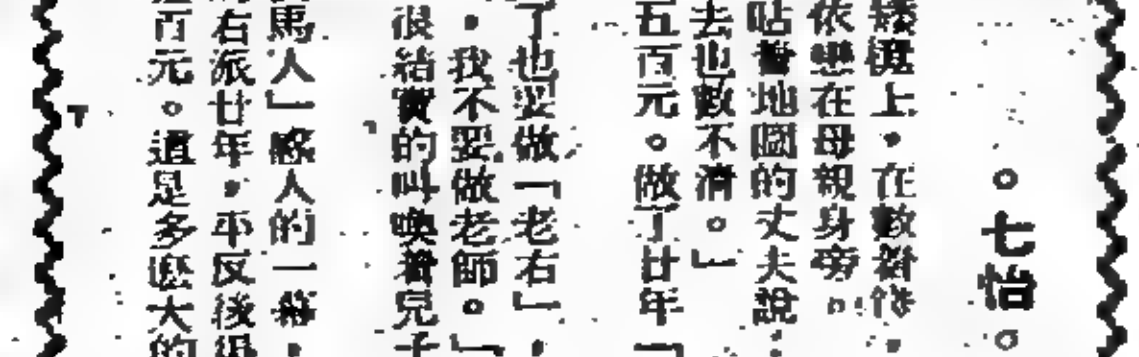 。七怡。
矮櫈上，在數着
依戀在母親身旁。
咕着地圖的丈夫說：
去也數不清。」
五百元。做了廿年「
了也要做「老右」，
，我不要做老師。「
很結實的叫喚着兒子
馬人」感人的一幕，
右派廿年，平反後
百元。這是多麼大的